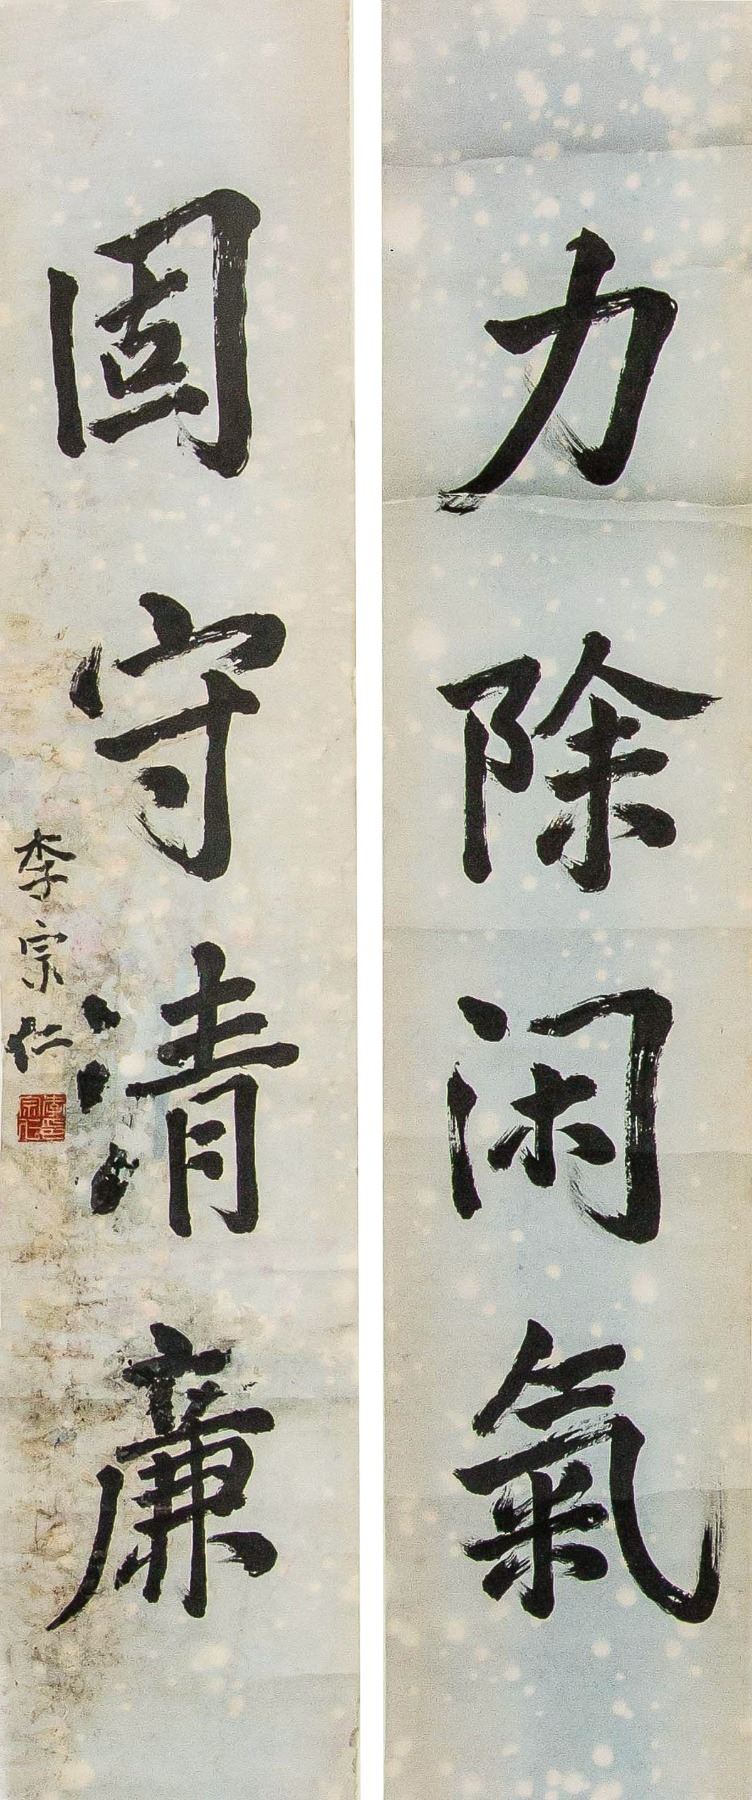 力除闲氣
固守清廉
李宗仁
李宗仁印